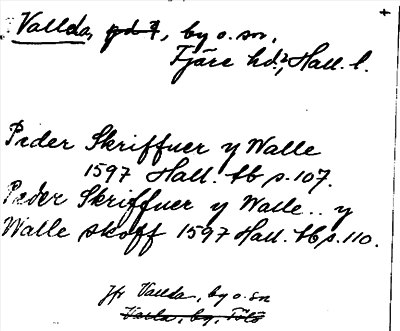 Vallda, gd 1, by o. sn,
Fjäre hd., Hall. l.
Peder Skriffuer y Walle
1597 Hall. tb s. 107.
Peder Skriffuer y Walle.. y
Walle skoff 1597 Hall. tb s. 110.
Jfr Vallda, by o. sn
Valla, by, Tölö